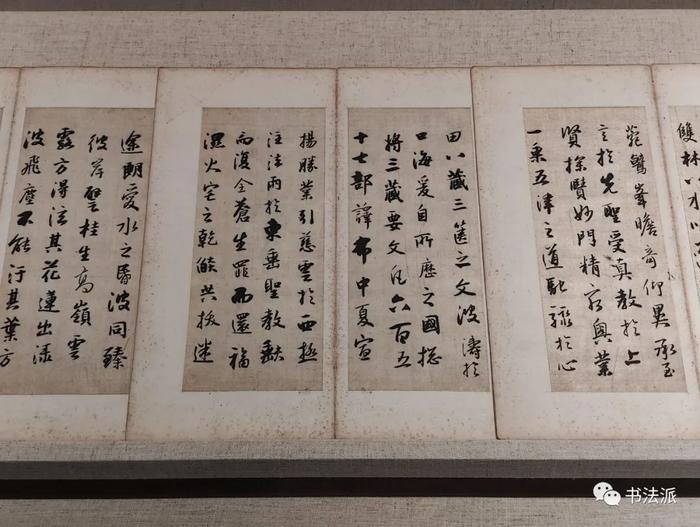 雙林八水
菀鷲峯瞻奇仰異承至
言於先聖受真教於上
賢探賾妙門精窮奧業
一乘五律之道馳驟於心
田八藏三篋之文波濤於
口海爰自所歷之國揔
將三藏要文凡六百五
十七部譯布中夏宣
揚勝業引慈雲於西極
注法雨於東垂聖教缺
而復全蒼生罪而還福
濕火宅之乾燄共拔迷
途朗愛水之昏波同臻
彼岸譬桂生高嶺雲
露方得泫其花蓮出淥
波飛塵不能汙其葉方
书法派